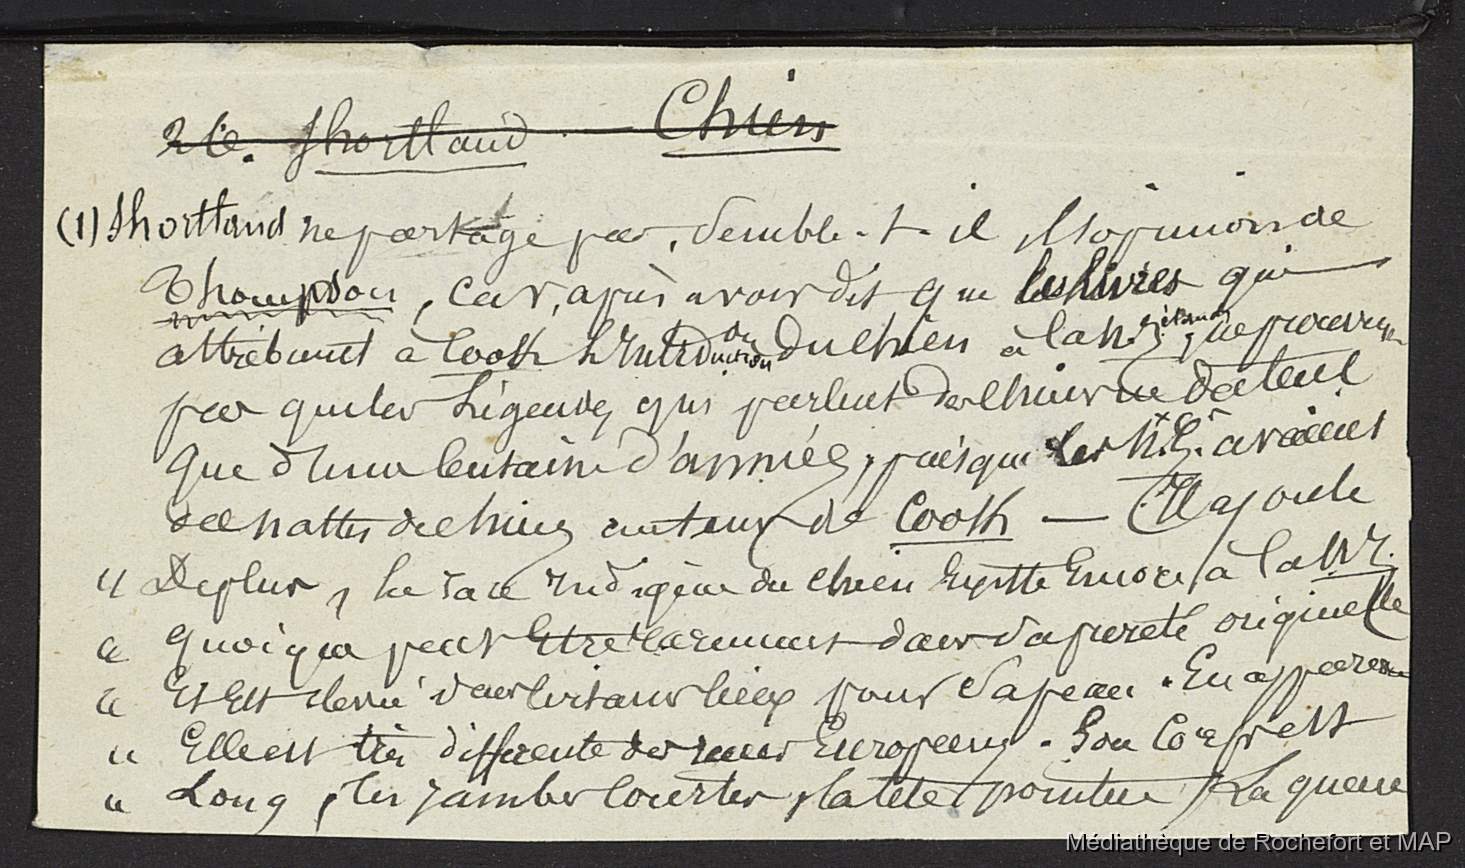 Shortland Chien
(1) Shortland ne partage pas, semble-t-il l'opinion de
Thompson, car, après avoir dit que les livres qui
attribuent à Cook l'Introduction du Chien à la N. Zélande, ne prouvent
pas que les Légendes qui parlent des Chiens ne datent
que d'une centaine d'années, puisque les N. Z. avaient
des nattes de Chiens au temps de Cook — Il ajoute
« De plus, la race indigène du Chien Existe Encore, à la N. Z.
« quoique peut Etre rarement dans sa pureté originelle
« Et Est élevé dans certains lieux pour sa peau. En apparence
« Elle est très différente des races Européens. Son Corps est
« Long, les jambes Courtes, la tête pointue, La queue
Médiathèque de Rochefort et MAP